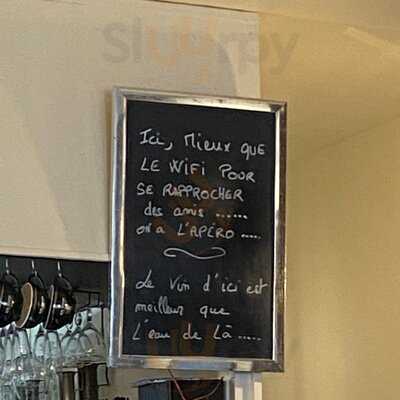 Sluurpy
Ici, Mieux que
LE WiFi POUR
SE RAPPROCHER
des amis ......
on a L'APÉRO ....
Le vin d'ici est
meilleur que
L'eau de Là .....